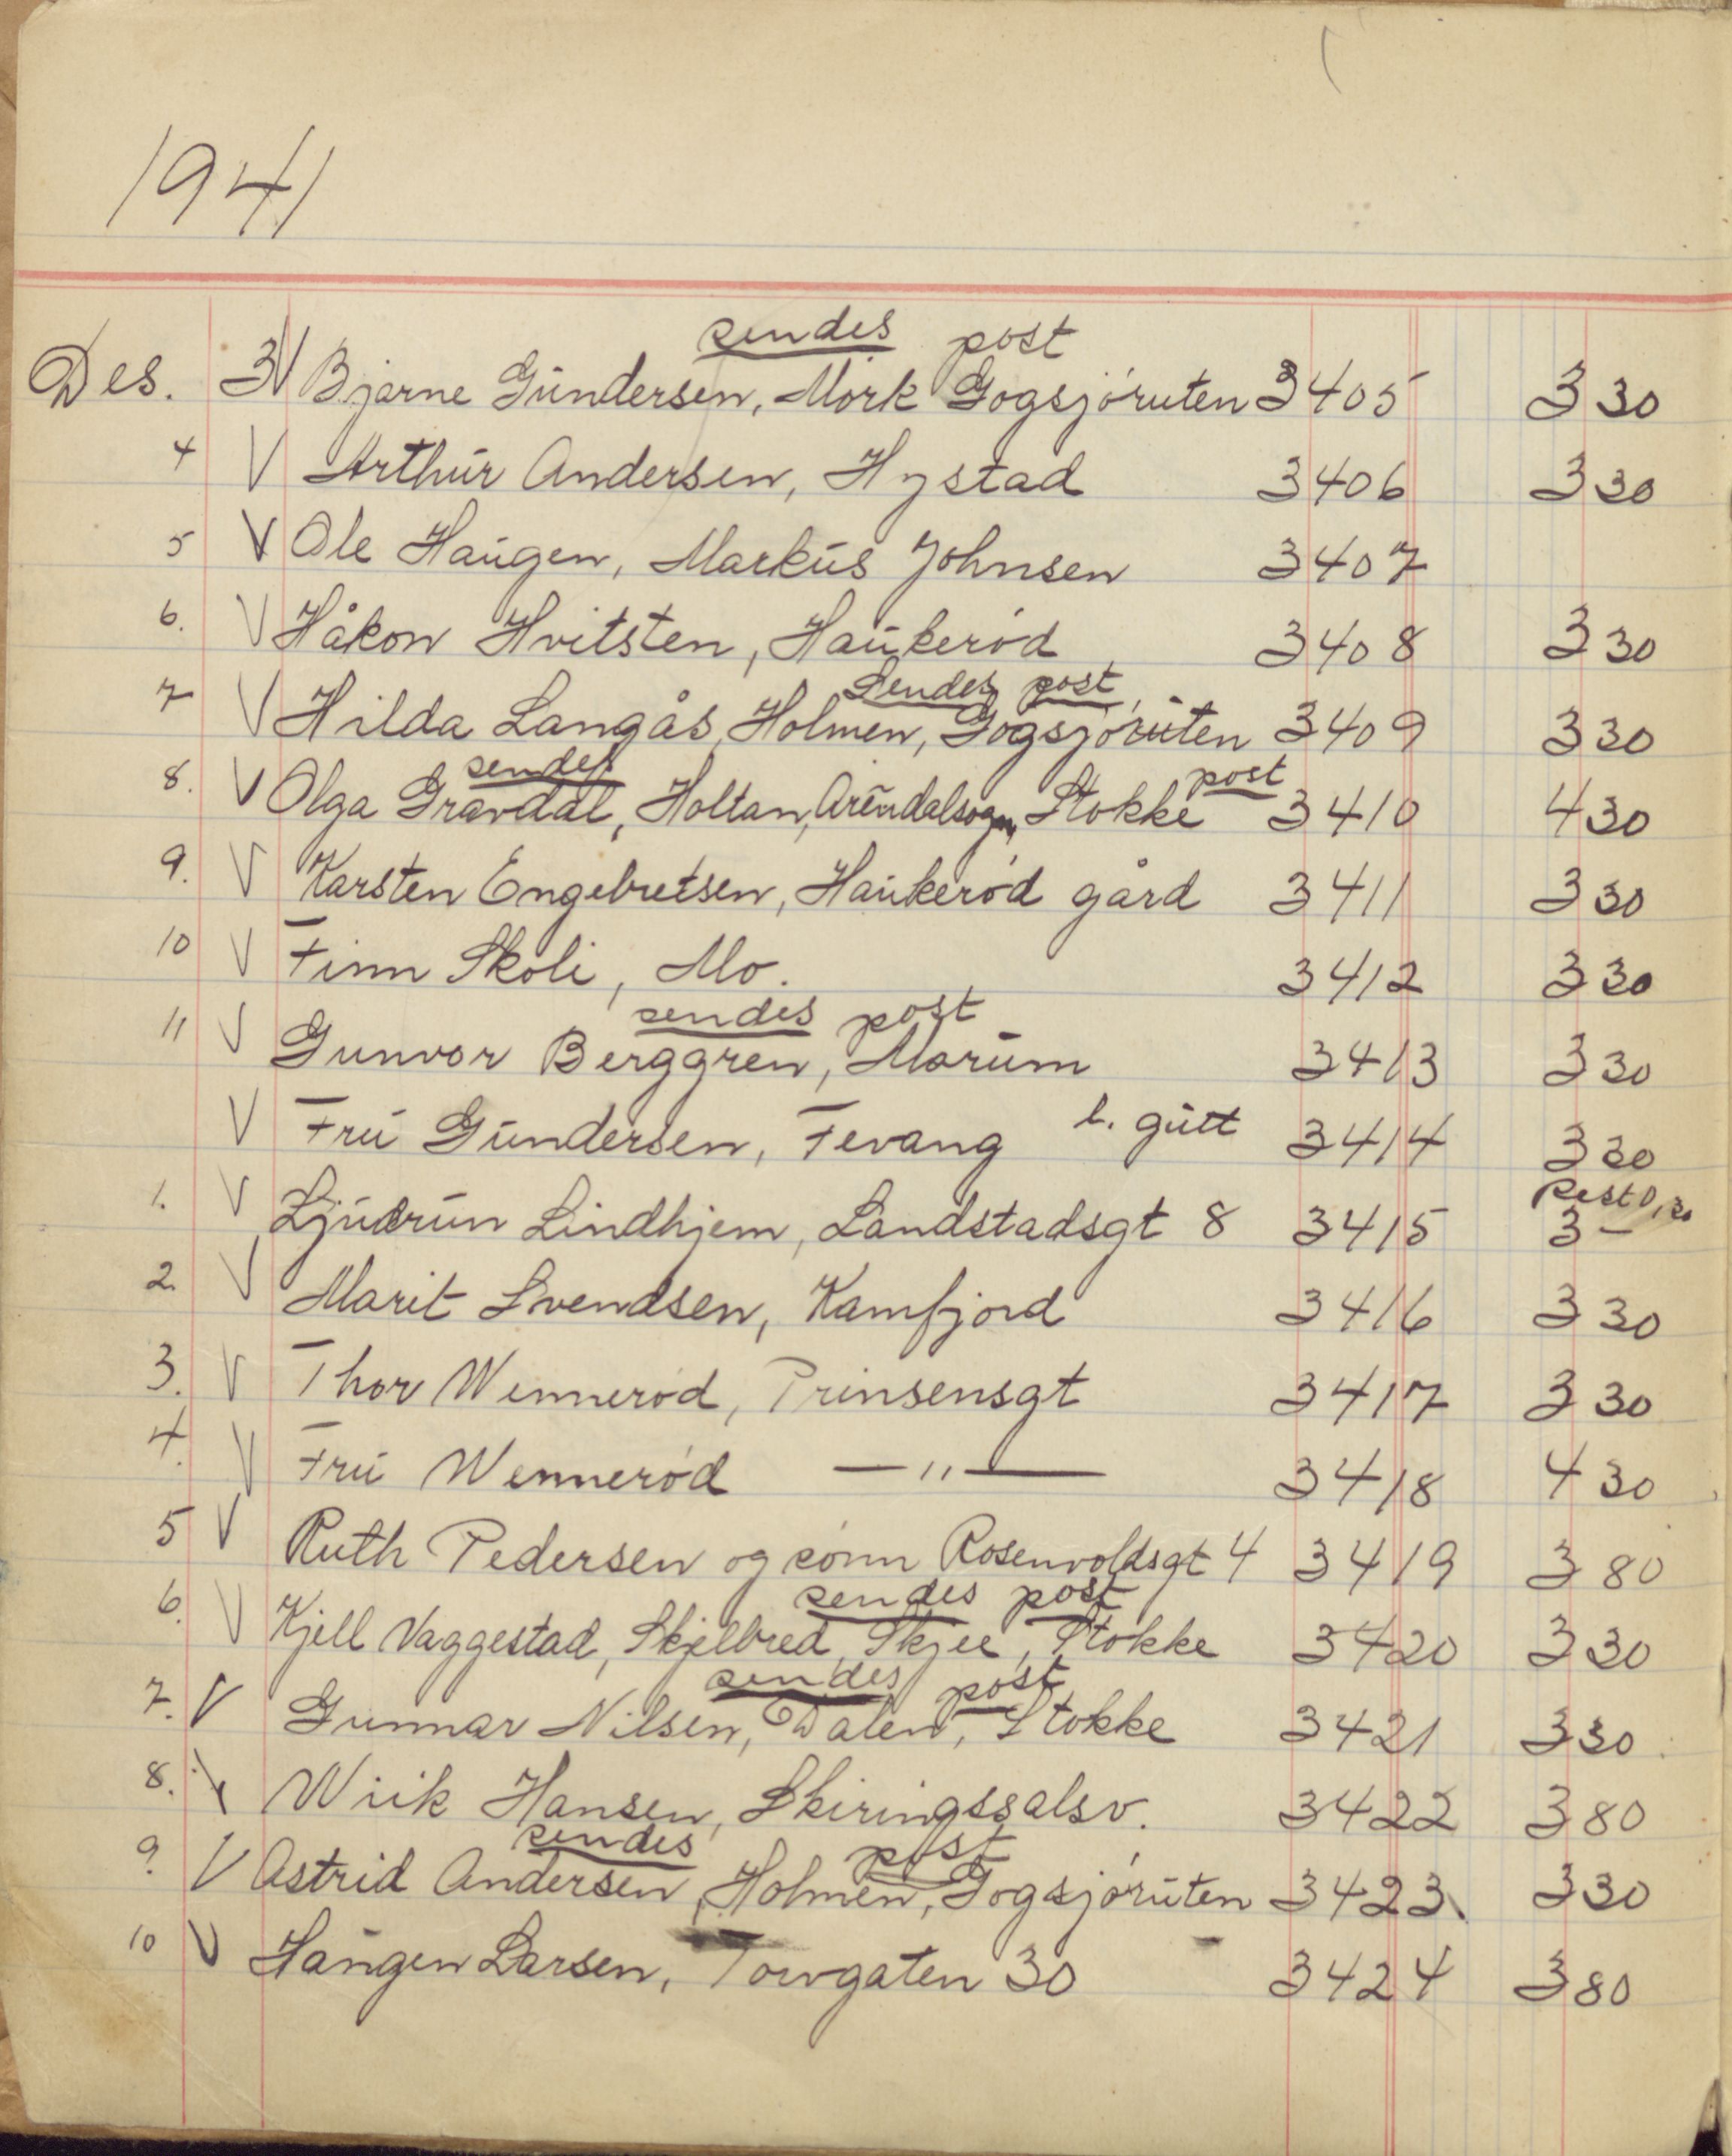 1941
sendes post
Des. 3 V Bjarne Gundersen, Mørk Gogsjøruten 3405 3 30
4 V Arthur Andersen, Hystad 3406 3 30
5 V Ole Haugen, Markus Johnsen 3407
6. V Håkon Hvitsten, Haukerød 3408 3 30
Sendes post
7 V Hilda Langås, Holmen, Gogsjøruten 3409 3 30
sendes post
8. V Olga Gravdal, Holtan, Stokke 3410 4 30
9. V Karsten Engebretsen, Haukerød gård 3411 3 30
10 V Finn Skoli, Mo. 3412 3 30
sendes post
11 V Gunvor Berggren, Marum 3413 3 30
V Fru Gundersen, Fevang l. gutt 3414 3 30
Rest 0,30
1. V Ljudrun Lindhjem, Landstadsgt 8 3415 3 —
2 V Marit Svendsen, Kamfjord 3416 3 30
3. V Thor Wennerød, Prinsensgt 3417 3 30
4. V Fru Wennerød —"— 3418 4 30
5 V Ruth Pedersen og sønn Rosenvoldsgt 4 3419 3 80
sendes post
6. V Kjell Vaggestad, Skjelbred, Skjee, Stokke 3420 3 30
sendes post
7. V Gunnar Nilsen, Dalen, Stokke 3421 3 30
8. V Wiik Hansen, Skiringssalsv. 3422 3 80
sendes post
9. V Astrid Andersen, Holmen, Gogsjøruten 3423 3 30
10 V Haugen Larsen, Torvgaten 30 3424 3 80